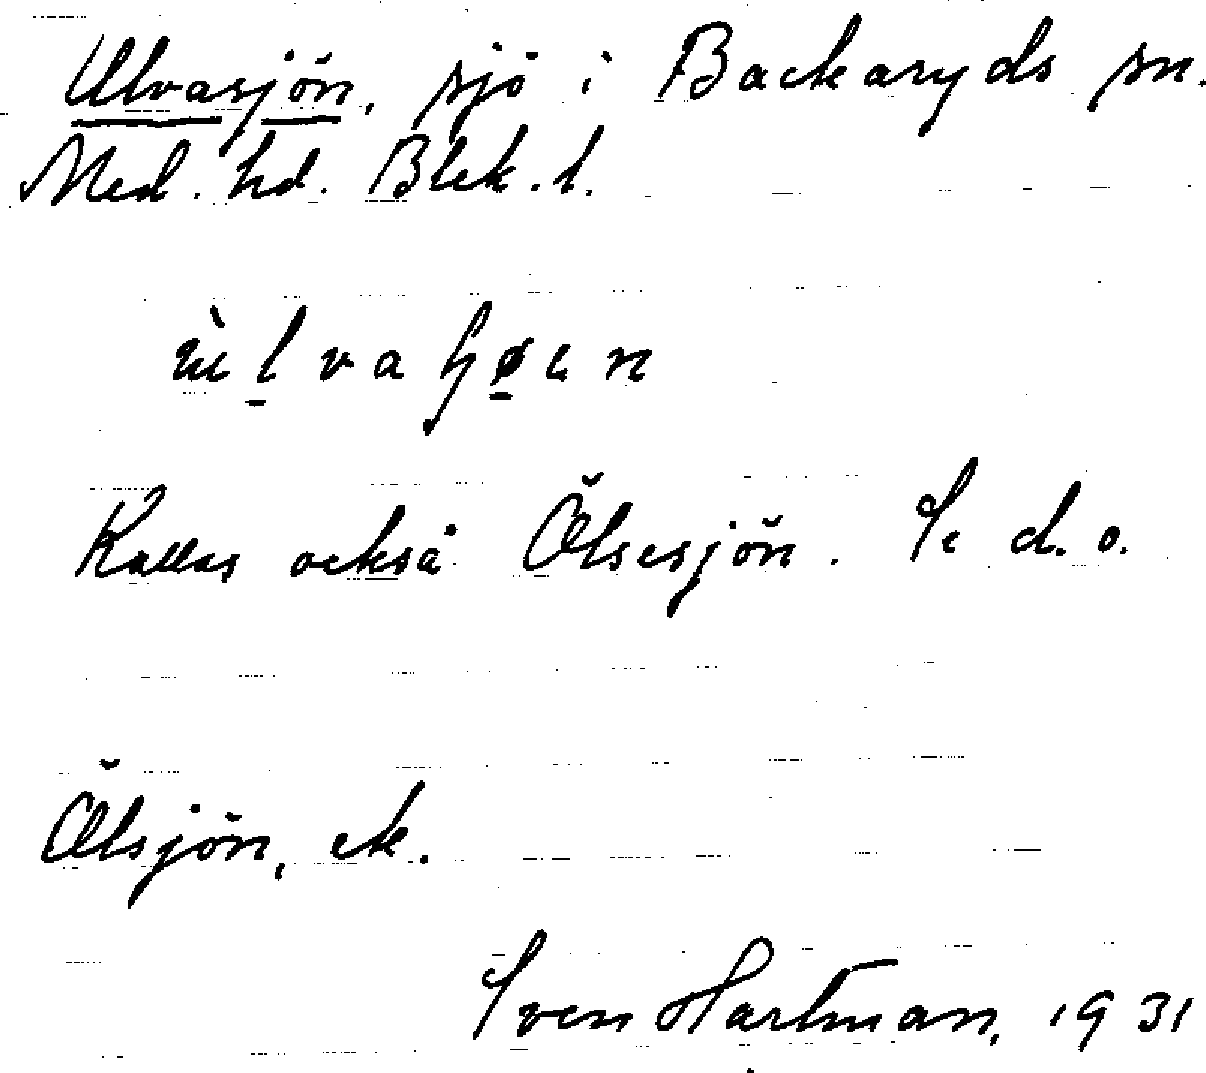 Ulvasjön, sjö i Backaryds sn.
Med. hd. Blek. l.
Kallas också Ölsesjön. Se d. o.
Ölsjön, ek.
Sven Hartman, 1931